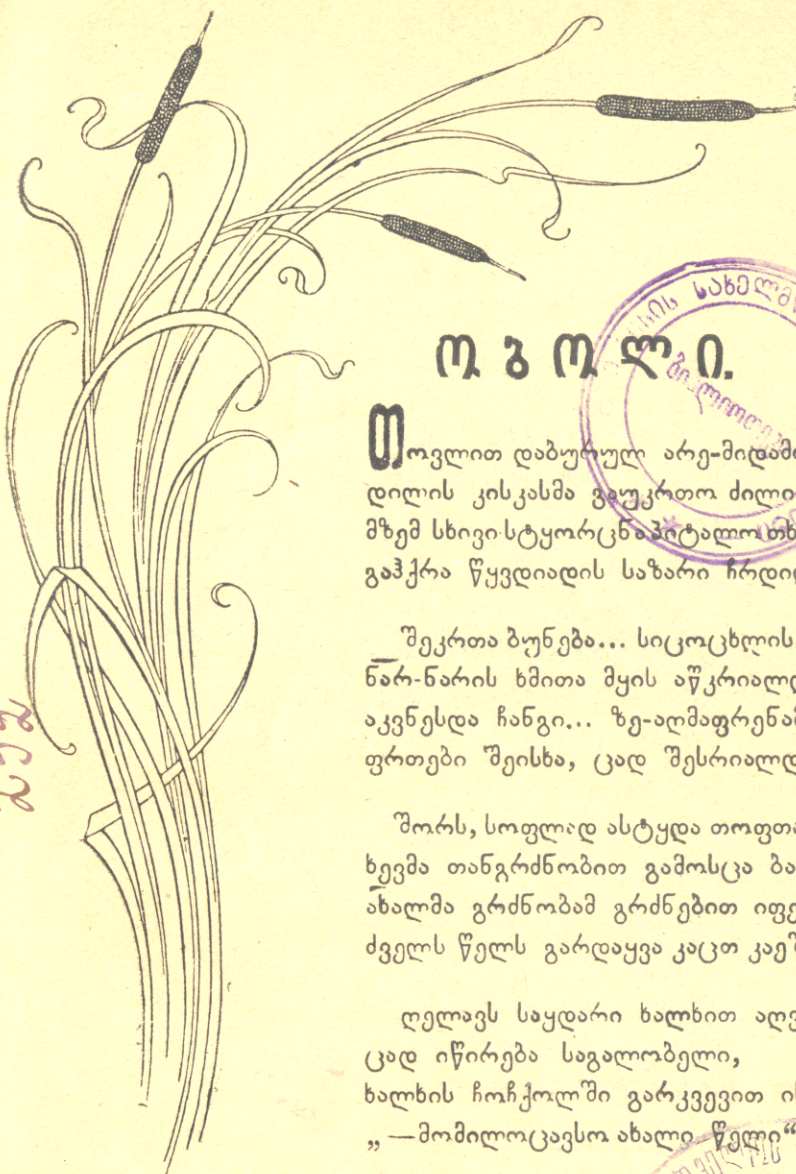 ობოლი.
თოვლით დაბურულ არე-მიდამო
დილის კისკასმა გაუკრთო ძილი
მზემ სხივი სტყორცნა პიტალო
გაჰქრა წყვდიადის საზარი ჩრდილ
შეკრთა ბუნება... სიცოცხლის
ნარ-ნარის ხმითა მყის აწკრიალდ
აკვნესდა ჩანგი... ზე-აღმაფრენამ
ფრთები შეისხა, ცად შესრიალდ
შორს, სოფლად ასტყდა თოფთა
ხევმა თანგრძნობით გამოსცა ბა
ახალმა გრძნობამ გრძნებით იფე
ძველს წელს გარდაყვა კაცთ კაეშ
ღელავს საყდარი ხალხით აღვ
ცად იწირება საგალობელი,
ხალხის ჩოჩქოლში გარკვევით ის
„—მომილოცავსო ახალი წელი“